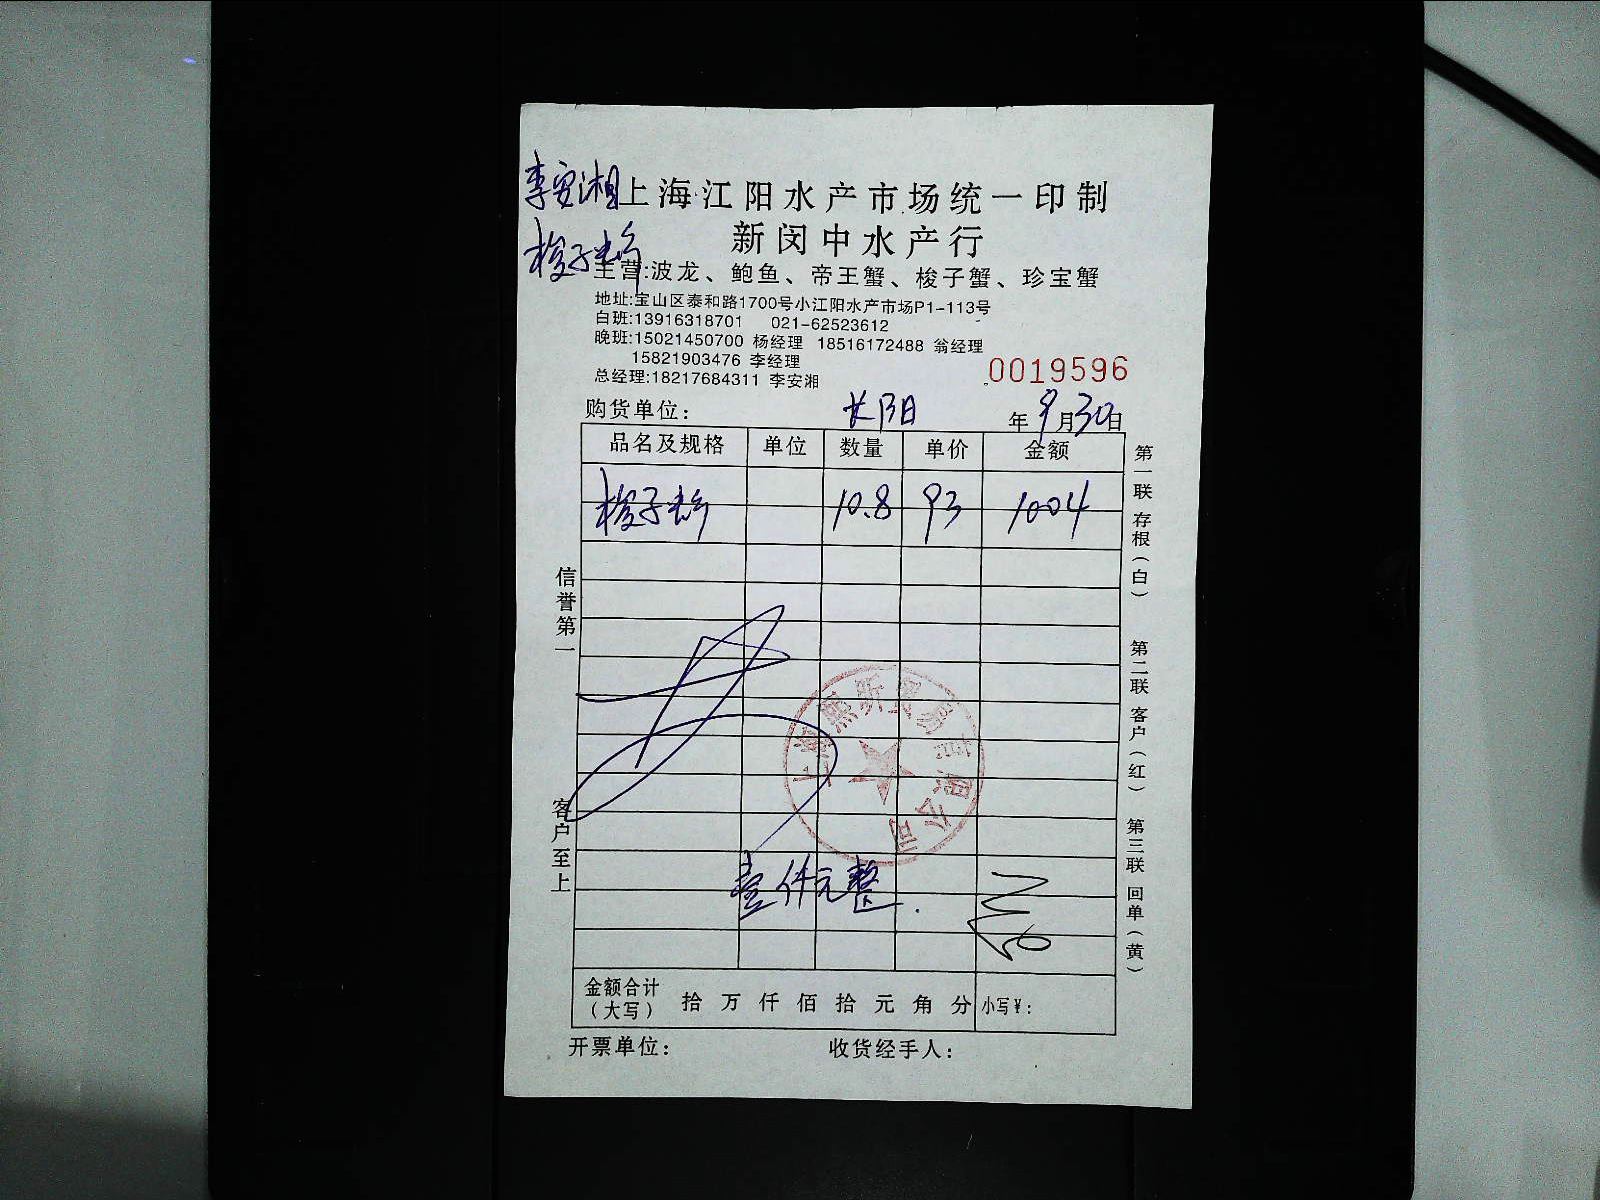 李安湘
上海江阳水产市场统一印制
梭子蟹
新闵中水产行
主营:波龙、鲍鱼、帝王蟹、梭子蟹、珍宝蟹
地址:宝山区泰和路1700号小江阳水产市场P1-113号
白班:13916318701 021-62523612
晚班:15021450700 杨经理 18516172488 翁经理
15821903476 李经理
总经理:18217684311 李安湘
0019596
购货单位: 长阳 年9月30日
品名及规格 单位 数量 单价 金额
梭子蟹 10.8 93 1004
信誉第一
客户至上
第一联 存根(白)
第二联 客户(红)
第三联 回单(黄)
上海熙昕贸易有限公司
壹仟元整.
金额合计(大写) 拾 万 仟 佰 拾 元 角 分 小写¥:
开票单位: 收货经手人: